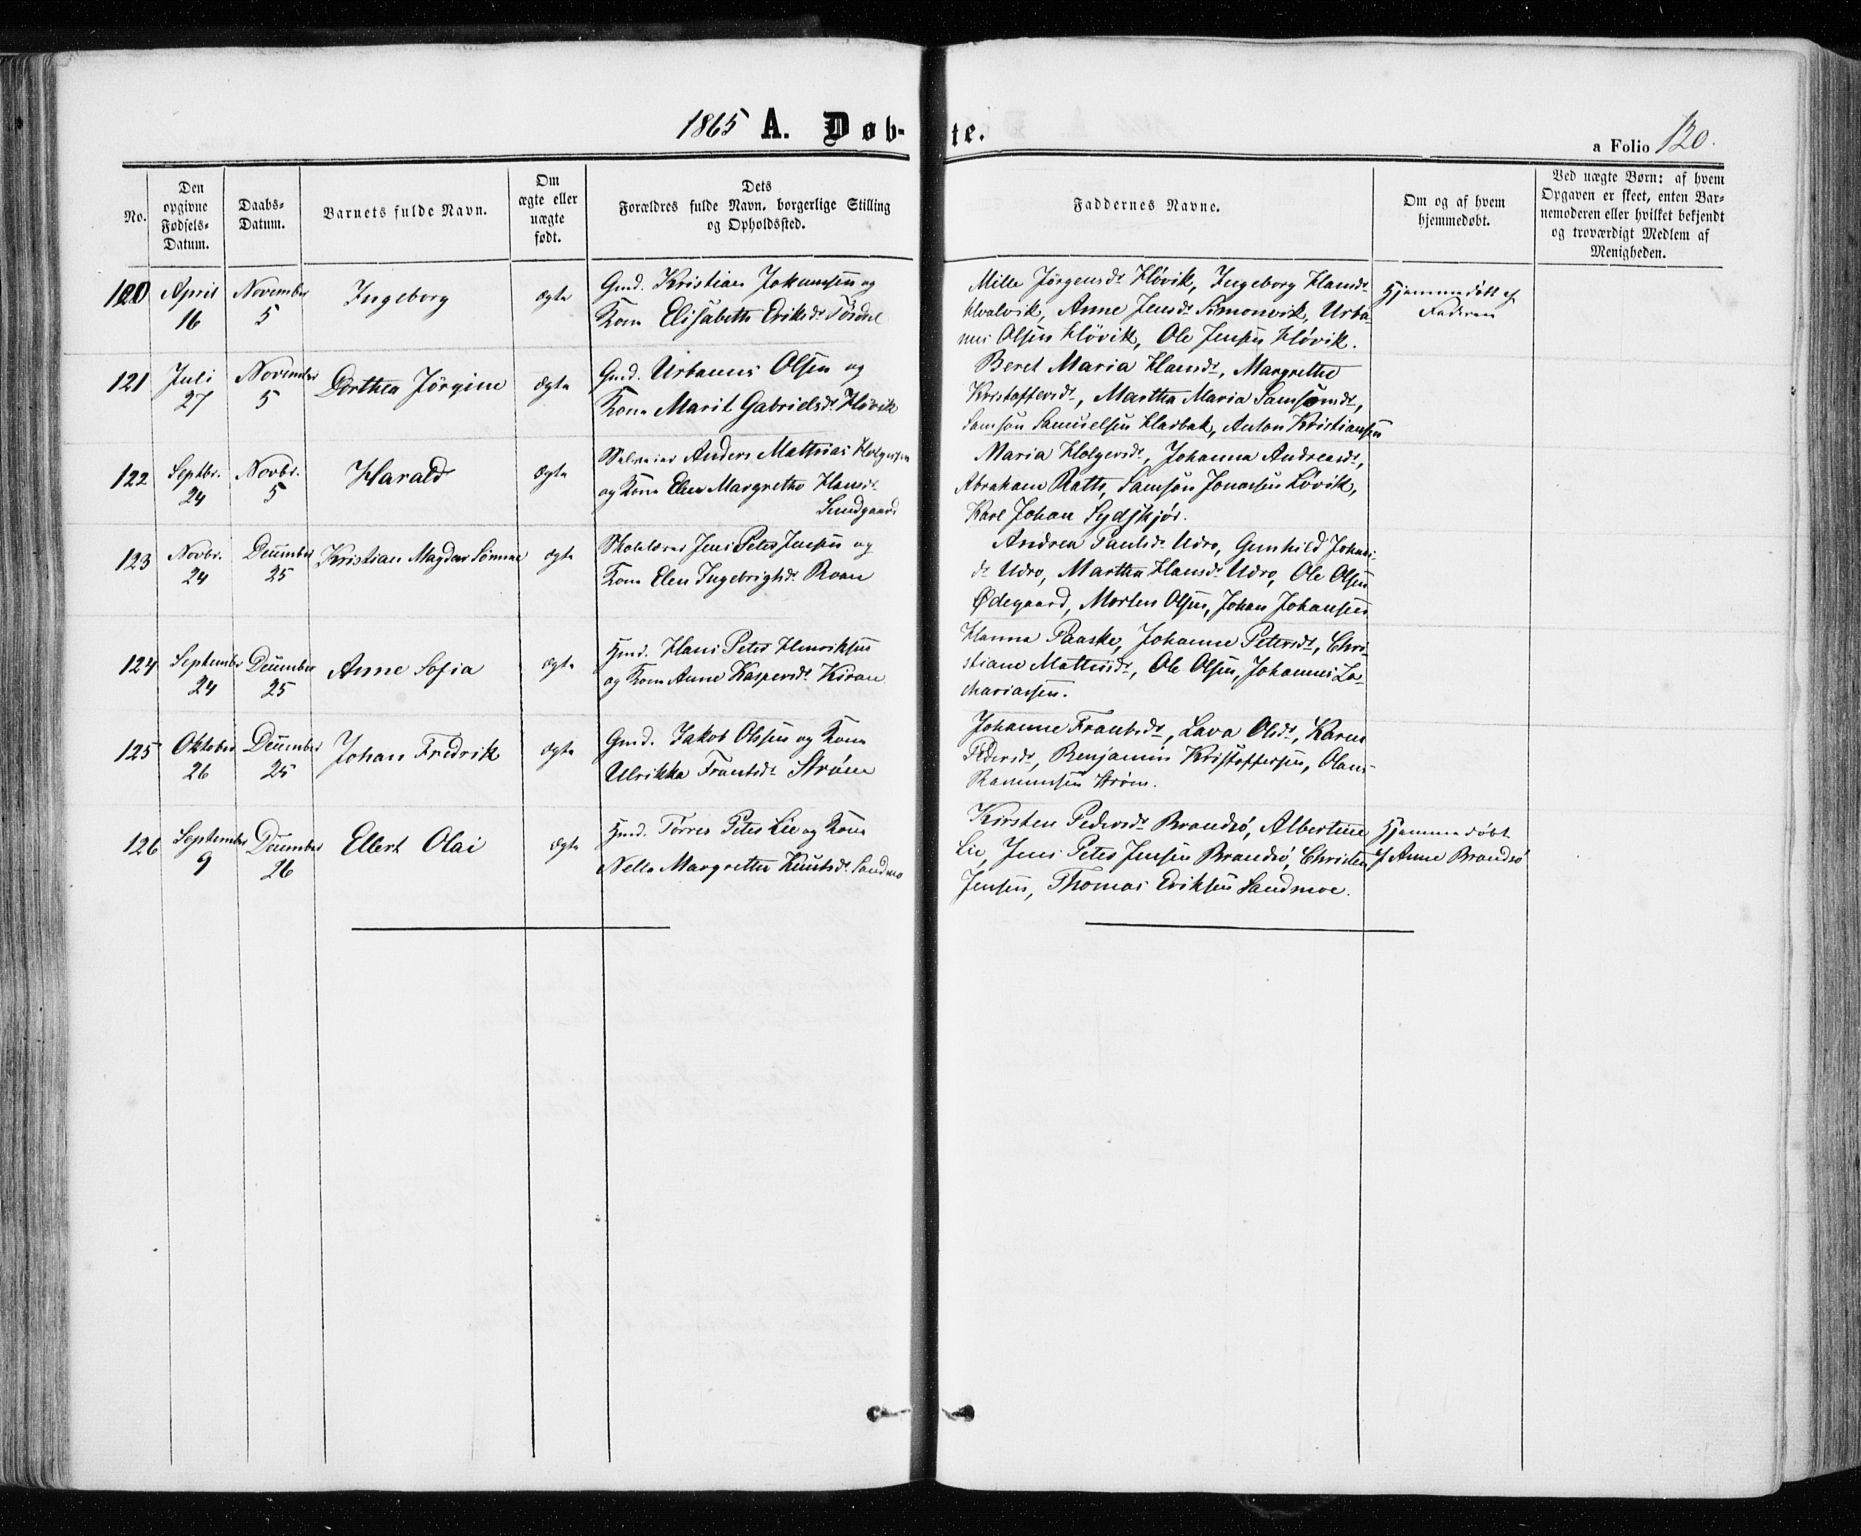 1865 A. Døb- te.
a Folio 120.
No.
Den opgivne Fødsels-Datum.
Daabs-Datum.
Barnets fulde Navn.
Om ægte eller uægte født.
Dets Forældres fulde Navn, borgerlige Stilling og Opholdssted.
Faddernes Navne.
Om og af hvem hjemmedøbt.
Ved uægte Børn: af hvem Opgaven er skeet, enten Barnemoderen eller hvilket bekjendt og troværdigt Medlem af Menigheden.
120 April 16 November 5 Ingeborg ægte
Gmd. Kristian Johansen og
Kone Elisabeth Eriksdr
Mille Jørgensdr Høvik, Ingeborg Hansdr
Hvalvik, Anne Jensdr Simonvik, Urba-
nus Olsen Høvik, Ole Jensen Høvik.
Hjemmedøbt af
Faderen
121 Juli 27 November 5 Dorthea Jørgine ægte
Gmd. Urbanus Olsen og
Kone Marit Gabrielsdr Høvik
Beret Maria Hansdr, Margrethe
Kristoffersdr, Martha Maria Samsonsdr,
Samson Samuelsen Harbak, Anton Kristiansen
122 Septbr. 24 Novbr. 5 Harald ægte
Anders Mathias Holgersen
og Kone Elen Margrethe Hansdr
Sundgaard
Maria Holgersdr, Johanna Andreasdr,
Abraham Rath, Samson Jonassen Løvik,
Karl Johan Sydskjør.
123 Novbr. 24 December 25 Kristian Magdar ægte
Skolelærer Jens Peter Jensen og
Kone Elen Ingebrigtsdr Roan
Andrea Paulsdr Udro, Gunhild Johans-
dr Udro, Martha Hansdr Udro, Ole Olsen
Ødegaard, Morten Olsen, Johan Johansen
124 September 24 December 25 Anne Sofia ægte
Hmd. Hans Peter Henriksen
og Kone Anne Kaspersdr Kiran
Hanna Paaske, Johanne Petersdr, Chri-
stiane Mathisdr, Ole Olsen, Johannes Za-
chariassen.
125 Oktober 26 December 25 Johan Fredrik ægte
Gmd. Jakob Olssen og Kone
Ulrikka Frantsdr Strøm
Johanne Frantsdr, Lava Olsdr, Karen
Pedersdr, Benjamin Kristoffersen, Olaus
Rasmussen Strøm.
126 September 9 December 26 Ellert Olai ægte
Hmd. Torres Peter Lie og Kone
Nella Margrethe Knutsdr Sandmo
Kirsten Pedersdr Brandsø, Albertine
Lie, Jens Peter Jensen Brandsø, Christen
Jensen, Thomas Eriksen Sandmoe.
Hjemmedøbt
af Anne Brandsø